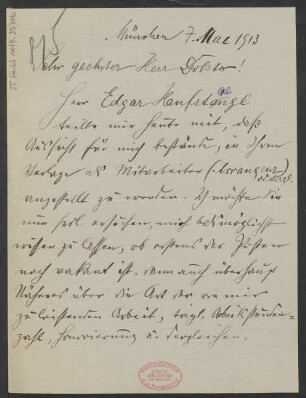 München 7. Mai 1913
Sehr geehrter Herr Doktor!
Herr Edgar Hanfstaengl
teilte mir heute mit, daß
Aussicht für mich bestände, in Ihrem
Verlage als Mitarbeiter
angestellt zu werden. Ich möchte Sie
nun frdl. ersuchen, mich baldmöglichst
wissen zu lassen, ob erstens der Posten
noch vakant ist, dann auch überhaupt
Näheres über die Art der von mir
zu leistenden Arbeit, tägl. Arbeitsstunden-
zahl, Honorierung u. dergleichen.